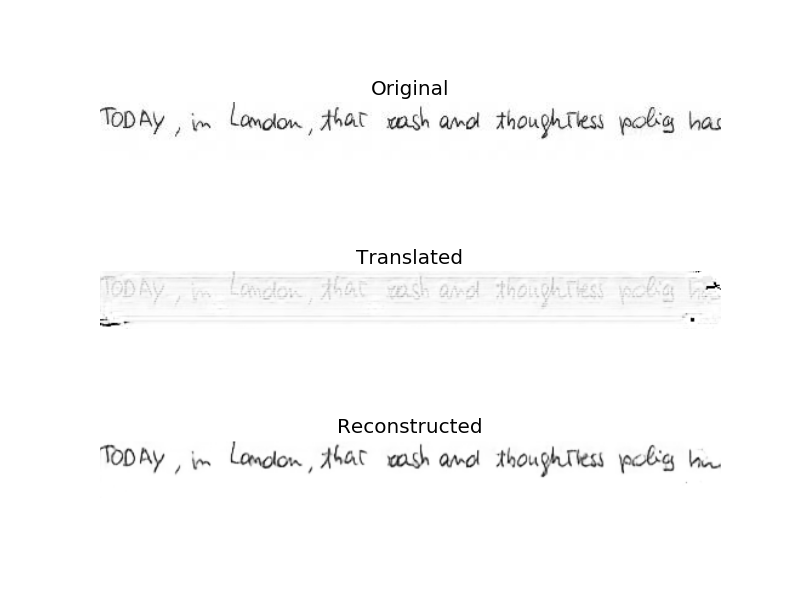 Original
TODAY, in London, that rash and thoughtless policy has
Translated
TODAY, in London, that rash and thoughtless policy has
Reconstructed
TODAY, in London, that rash and thoughtless policy